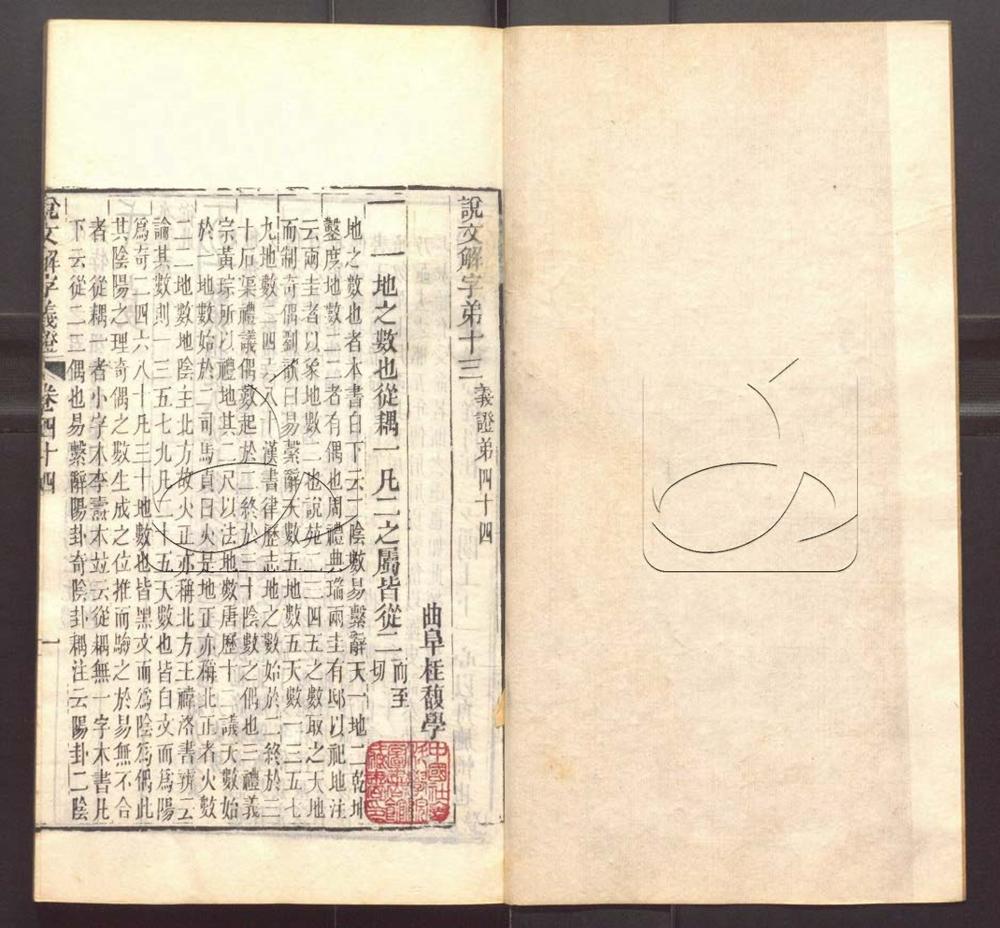 說文解字弟十三 義證弟四十四
曲阜桂馥學
二 地之數也從耦一凡二之屬皆從二 而至切
地之數也者本書白下云二陰數易繫辭天一地二乾坤
鑿度地數二二者有偶也周禮典瑞兩圭有邸以祀地注
云兩圭者以象地數二也說苑一二三四五之數取之天地
而制奇偶劉歆曰易繫辭天數五地數五天數一三五七
九地數二四六八十漢書律歷志地之數始於二終於三
十石渠禮議偶數起於二終於三十陰數之偶也三禮義
宗黃琮所以禮地其二尺以法地數唐歷十二議天數始
於一地數始於二司馬貞曰火是地正亦稱北正者火數
二二地數地陰主北方故火正亦稱北方王禕洛書辨云
論其數則一三五七九凡二十五天數也皆白文而爲陽
爲奇二四六八十凡三十地數也皆黑文而爲陰爲偶此
其陰陽之理奇偶之數生成之位推而驗之於易無不合
者 從耦一者小字本李燾本竝云從耦無一字本書凡
下云從二二偶也易繫辭陽卦奇陰卦耦注云陽卦二陰
說文解字義證 卷四十四 一